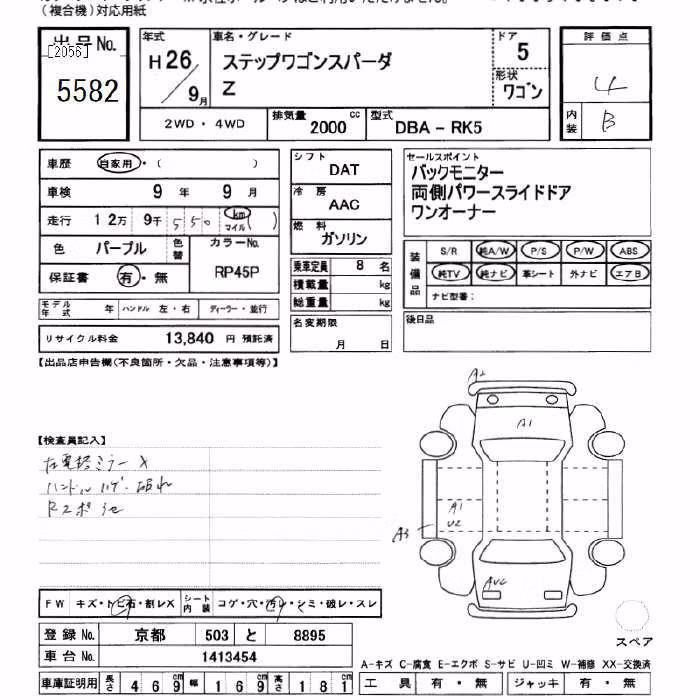 (複合機)対応用紙
出品No.
[2056]
5582
年式
H 26/9月
車名・グレード
ステップワゴンスパーダ
Z
ドア
5
形状
ワゴン
評価点
4
内装
B
2WD・4WD
排気量
2000 cc
型式
DBA - RK5
車歴 自家用・( )
車検 9 年 9 月
走行 12万 9千 550 km マイル ( )
色 パープル 色替 カラーNo.
保証書 有・無 RP45P
モデル年式 年 ハンドル 左・右 ディーラー・並行
リサイクル料金 13,840 円 預託済
シフト
DAT
冷房
AAC
燃料
ガソリン
乗車定員 8 名
積載量 kg
総重量 kg
名変期限
月 日
セールスポイント
バックモニター
両側パワースライドドア
ワンオーナー
装備品
S/R 純A/W P/S P/W ABS
純TV 純ナビ 革シート 外ナビ エアB
ナビ型番:
後日品
【出品店申告欄(不良箇所・欠品・注意事項等)】
【検査員記入】
左電格ミラーX
ハンドルハゲ・破れ
A2
A1
A1
U2
A3
スペア
FW キズ・トビ石・割レX シート内装 コゲ・穴・汚レ・シミ・破レ・スレ
登録No. 京都 503 と 8895
車台No. 1413454
車庫証明用 長さ 469 幅 169 高さ 181
A-キズ C-腐食 E-エクボ S-サビ U-凹ミ W-補修 XX-交換済
工具 有・無 ジャッキ 有・無